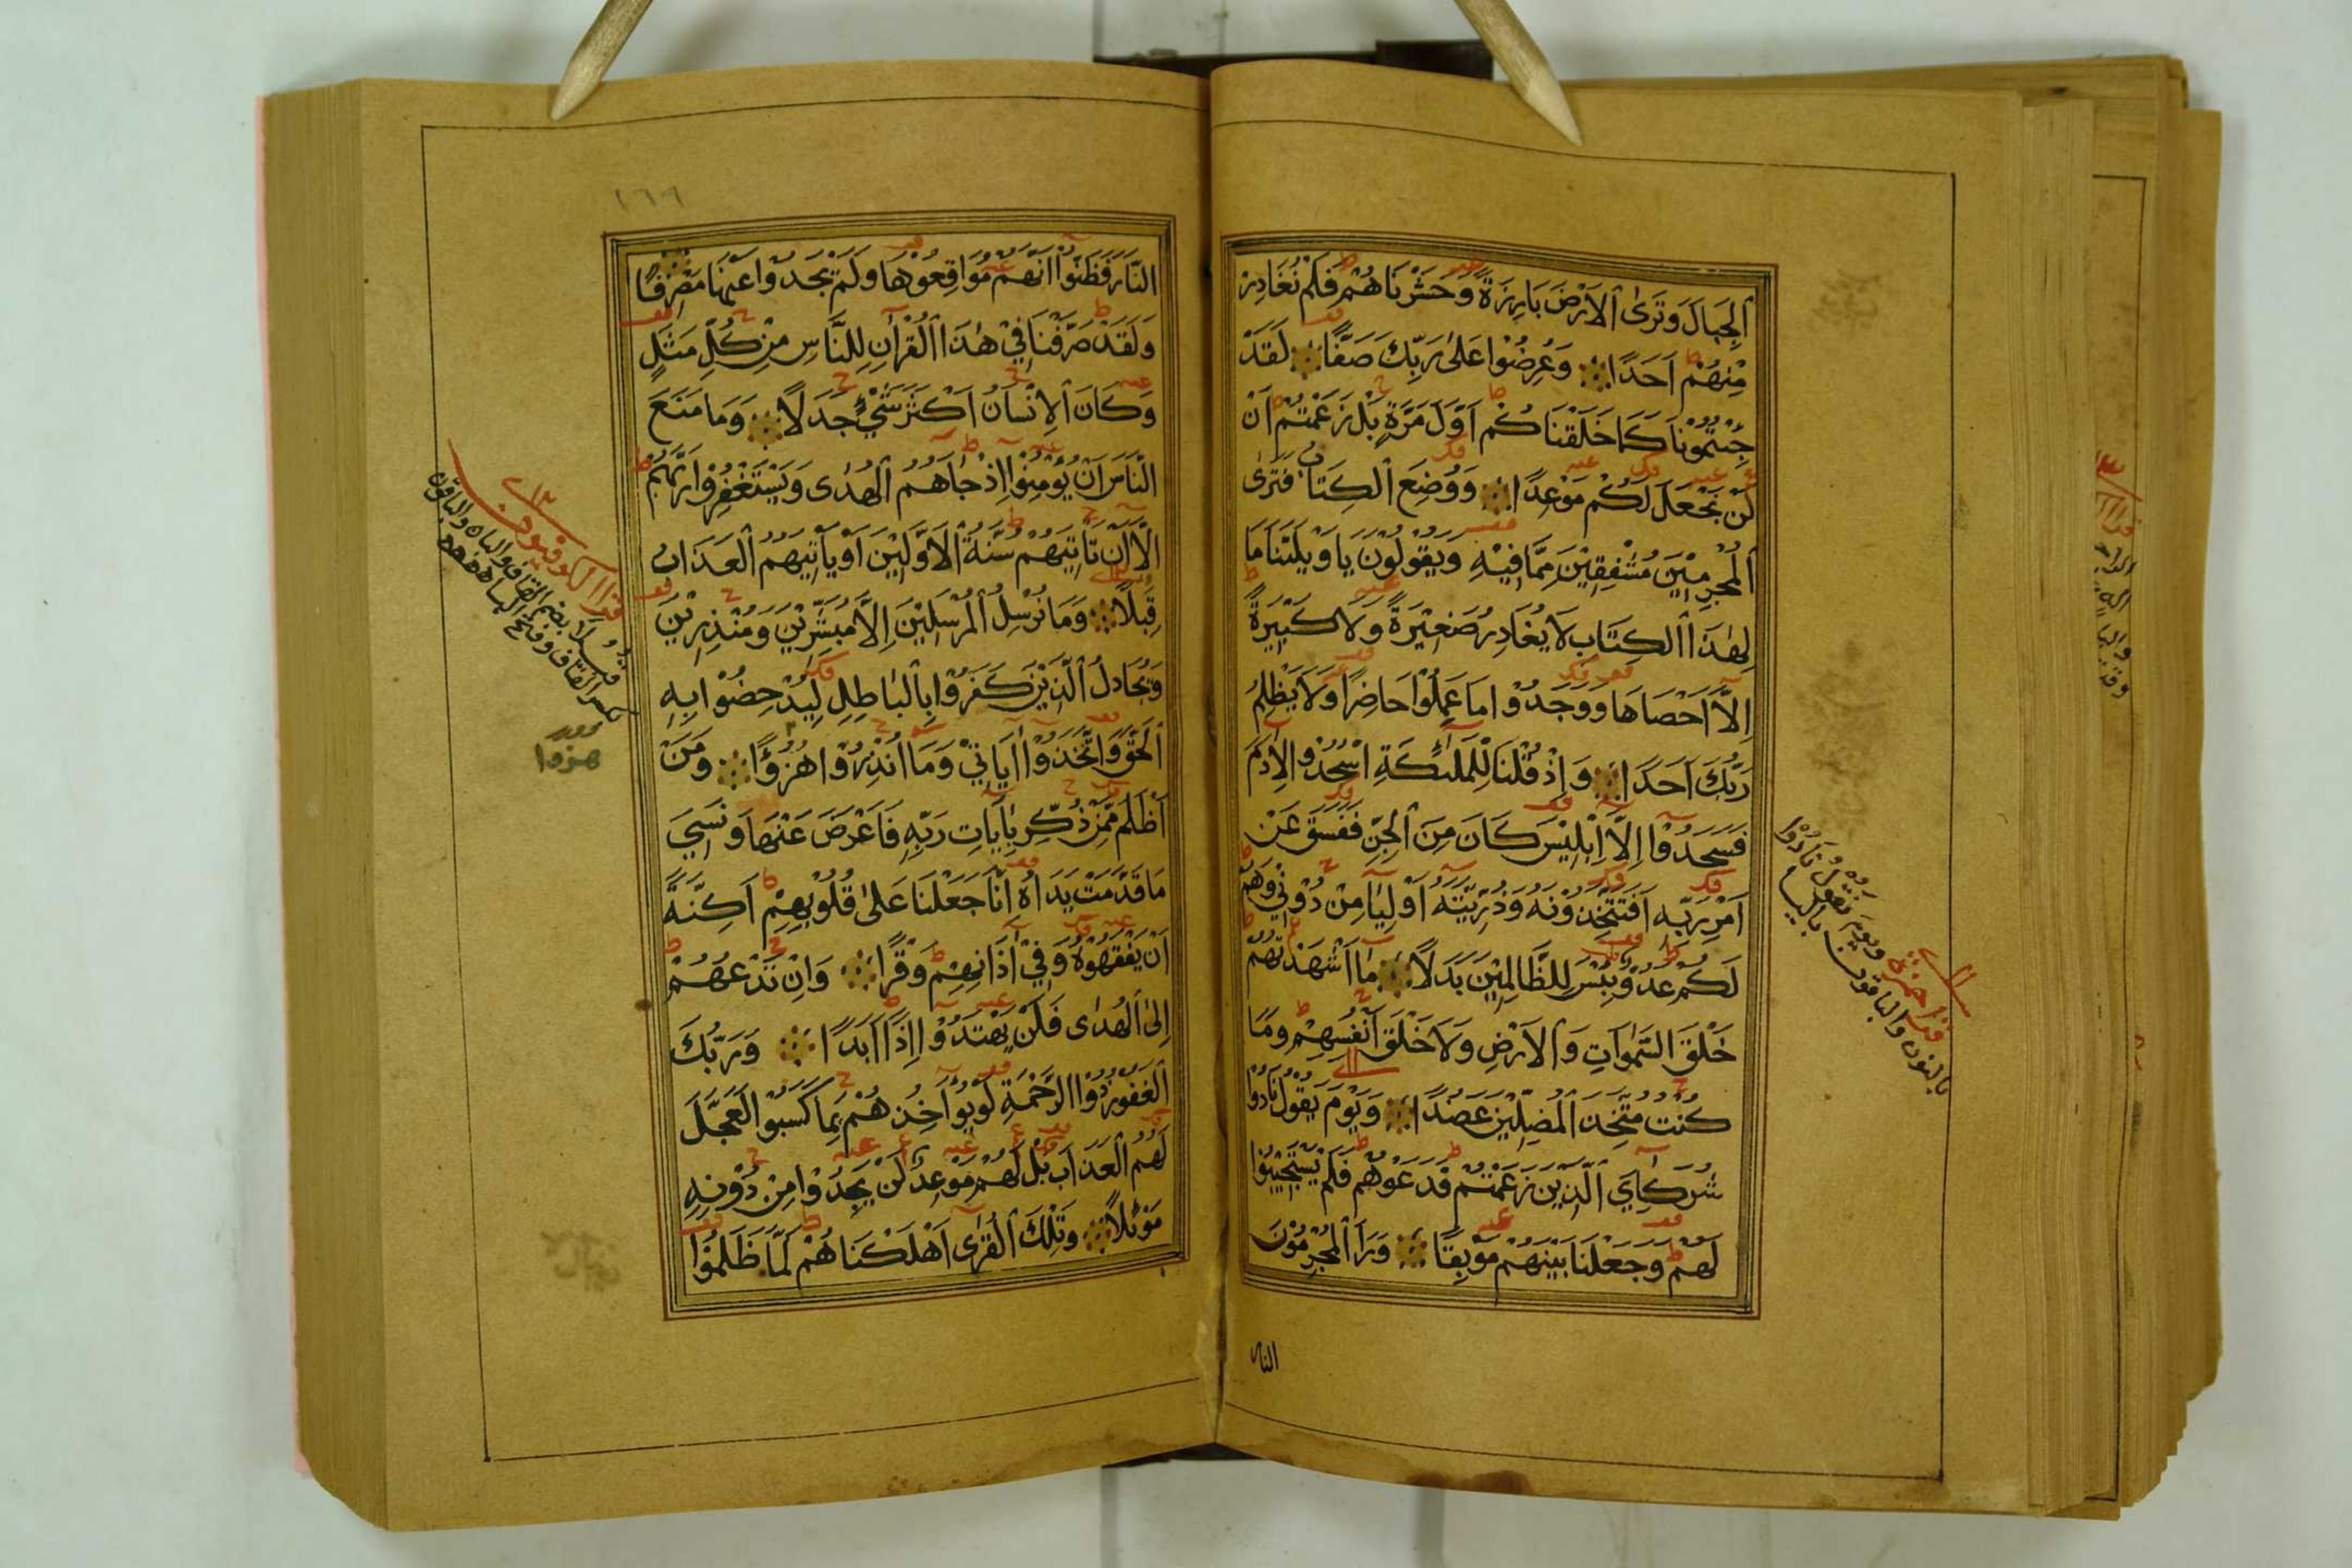 ٱلْجِبَالَ وَتَرَىٰ ٱلْاَرْضَ بَارِزَةً وَحَشَرْنَاهُمْ فَلَمْ نُغَادِرْ
مِنْهُمْ اَحَدًا وَعُرِضُوْا عَلٰى رَبِّكَ صَفًّا لَقَدْ
جِئْتُمُوْنَا كَمَا خَلَقْنَاكُمْ اَوَّلَ مَرَّةٍ بَلْ زَعَمْتُمْ اَنْ
لَنْ نَجْعَلَ لَكُمْ مَوْعِدًا وَوُضِعَ ٱلْكِتَابُ فَتَرَى
ٱلْمُجْرِمِيْنَ مُشْفِقِيْنَ مِمَّا فِيْهِ وَيَقُوْلُوْنَ يَا وَيْلَتَنَا مَا
لِهٰذَا ٱلْكِتَابِ لَا يُغَادِرُ صَغِيْرَةً وَلَا كَبِيْرَةً
اِلَّا اَحْصَاهَا وَوَجَدُوْا مَا عَمِلُوْا حَاضِرًا وَلَا يَظْلِمُ
رَبُّكَ اَحَدًا وَاِذْ قُلْنَا لِلْمَلٰئِكَةِ اسْجُدُوْا لِاٰدَمَ
فَسَجَدُوْا اِلَّا اِبْلِيْسَ كَانَ مِنَ ٱلْجِنِّ فَفَسَقَ عَنْ
اَمْرِ رَبِّهِ اَفَتَتَّخِذُوْنَهُ وَذُرِّيَّتَهُ اَوْلِيَاءَ مِنْ دُوْنِيْ وَهُمْ
لَكُمْ عَدُوٌّ بِئْسَ لِلظَّالِمِيْنَ بَدَلًا مَا اَشْهَدْتُهُمْ
خَلْقَ السَّمٰوَاتِ وَٱلْاَرْضِ وَلَا خَلْقَ اَنْفُسِهِمْ وَمَا
كُنْتُ مُتَّخِذَ ٱلْمُضِلِّيْنَ عَضُدًا وَيَوْمَ يَقُوْلُ نَادُوْا
شُرَكَايَ ٱلَّذِيْنَ زَعَمْتُمْ فَدَعَوْهُمْ فَلَمْ يَسْتَجِيْبُوْا
لَهُمْ وَجَعَلْنَا بَيْنَهُمْ مَوْبِقًا وَرَاَ ٱلْمُجْرِمُوْنَ
النار
قرا حمزة ويوم نقول نادوا
بالنون والباقون بالياء
١٦٩
النَّارَ فَظَنُّوْا اَنَّهُمْ مُوَاقِعُوْهَا وَلَمْ يَجِدُوْا عَنْهَا مَصْرِفًا
وَلَقَدْ صَرَّفْنَا فِيْ هٰذَا ٱلْقُرْاٰنِ لِلنَّاسِ مِنْ كُلِّ مَثَلٍ
وَكَانَ ٱلْاِنْسَانُ اَكْثَرَ شَيْءٍ جَدَلًا وَمَا مَنَعَ
النَّاسَ اَنْ يُؤْمِنُوْا اِذْ جَاءَهُمُ ٱلْهُدٰى وَيَسْتَغْفِرُوْا رَبَّهُمْ
اِلَّا اَنْ تَاْتِيَهُمْ سُنَّةُ ٱلْاَوَّلِيْنَ اَوْ يَاْتِيَهُمُ ٱلْعَذَابُ
قِبَلًا وَمَا نُرْسِلُ ٱلْمُرْسَلِيْنَ اِلَّا مُبَشِّرِيْنَ وَمُنْذِرِيْنَ
وَيُجَادِلُ ٱلَّذِيْنَ كَفَرُوْا بِالْبَاطِلِ لِيُدْحِضُوْا بِهِ
ٱلْحَقَّ وَاتَّخَذُوْا اٰيَاتِيْ وَمَا اُنْذِرُوْا هُزُؤًا وَمَنْ
اَظْلَمُ مِمَّنْ ذُكِّرَ بِاٰيَاتِ رَبِّهِ فَاَعْرَضَ عَنْهَا وَنَسِيَ
مَا قَدَّمَتْ يَدَاهُ اِنَّا جَعَلْنَا عَلٰى قُلُوْبِهِمْ اَكِنَّةً
اَنْ يَفْقَهُوْهُ وَفِيْ اٰذَانِهِمْ وَقْرًا وَاِنْ تَدْعُهُمْ
اِلَى ٱلْهُدٰى فَلَنْ يَهْتَدُوْا اِذًا اَبَدًا وَرَبُّكَ
ٱلْغَفُوْرُ ذُوا الرَّحْمَةِ لَوْ يُوَاخِذُهُمْ بِمَا كَسَبُوْا لَعَجَّلَ
لَهُمُ ٱلْعَذَابَ بَلْ لَهُمْ مَوْعِدٌ لَنْ يَجِدُوْا مِنْ دُوْنِهِ
مَوْئِلًا وَتِلْكَ ٱلْقُرٰى اَهْلَكْنَاهُمْ لَمَّا ظَلَمُوْا
قرا الكوفيون
قبلا بضم القاف والباء والباقون
بكسر القاف وفتح الباء
هزوا